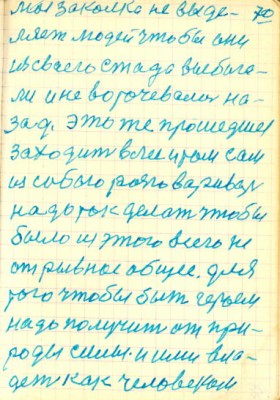 моя закомка не выде- 70
ляет людей чтобы они
из своего стада выбега-
ли и не ворочевались на-
зад. Это же прошедшее
заходит в лечитом сам
из собою разговаривал
надо так делат чтобы
было из этого всего не
отрывное общее. для
того чтобы быт героем
надо получит от при-
роды силы. и ими вла-
дет как человеком